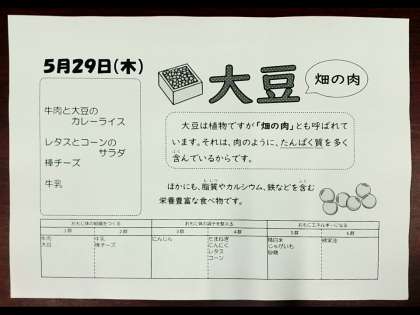 5月29日(木)
大豆
畑の肉
牛肉と大豆の
カレーライス
レタスとコーンの
サラダ
棒チーズ
牛乳
大豆は植物ですが「畑の肉」とも呼ばれて
います。それは、肉のように、たんぱく質を多く
含んでいるからです。
ほかにも、脂質やカルシウム、鉄などを含む
栄養豊富な食べ物です。
おもに体の組織をつくる
おもに体の調子を整える
おもにエネルギーになる
1群 2群 3群 4群 5群 6群
牛肉 牛乳 にんじん たまねぎ 精白米
大豆 棒チーズ にんにく じゃがいも
レタス 砂糖
コーン